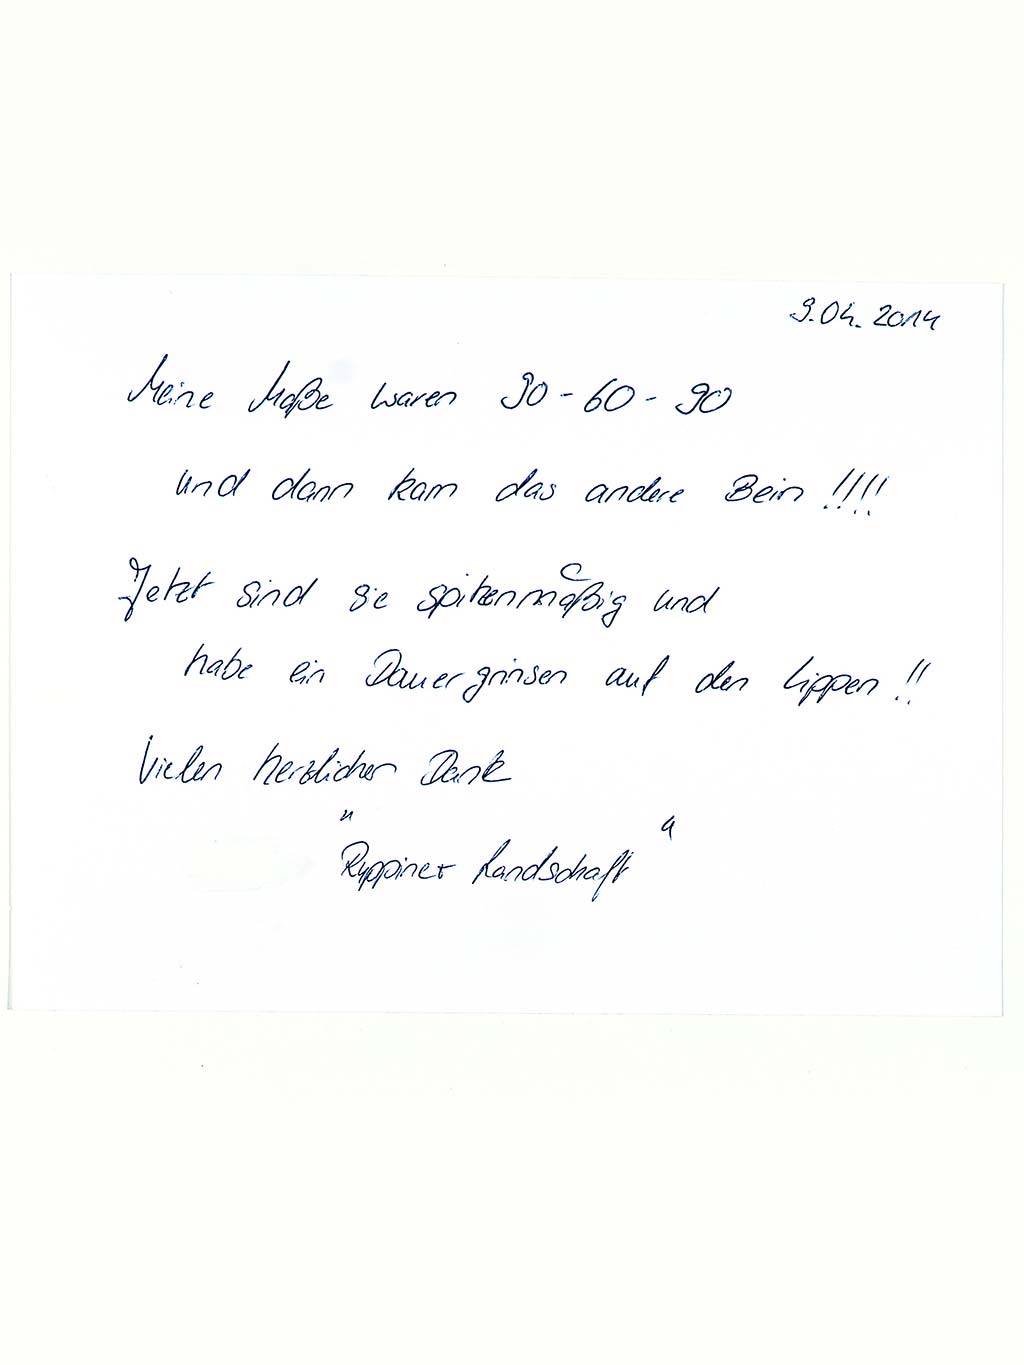 9.04.2014
Meine Maße waren 90-60-90
und dann kam das andere Bein!!!!
Jetzt sind sie spitzenmäßig und
habe ein Dauergrinsen auf den Lippen!!
Vielen herzlichen Dank
"Ruppiner Landschaft"